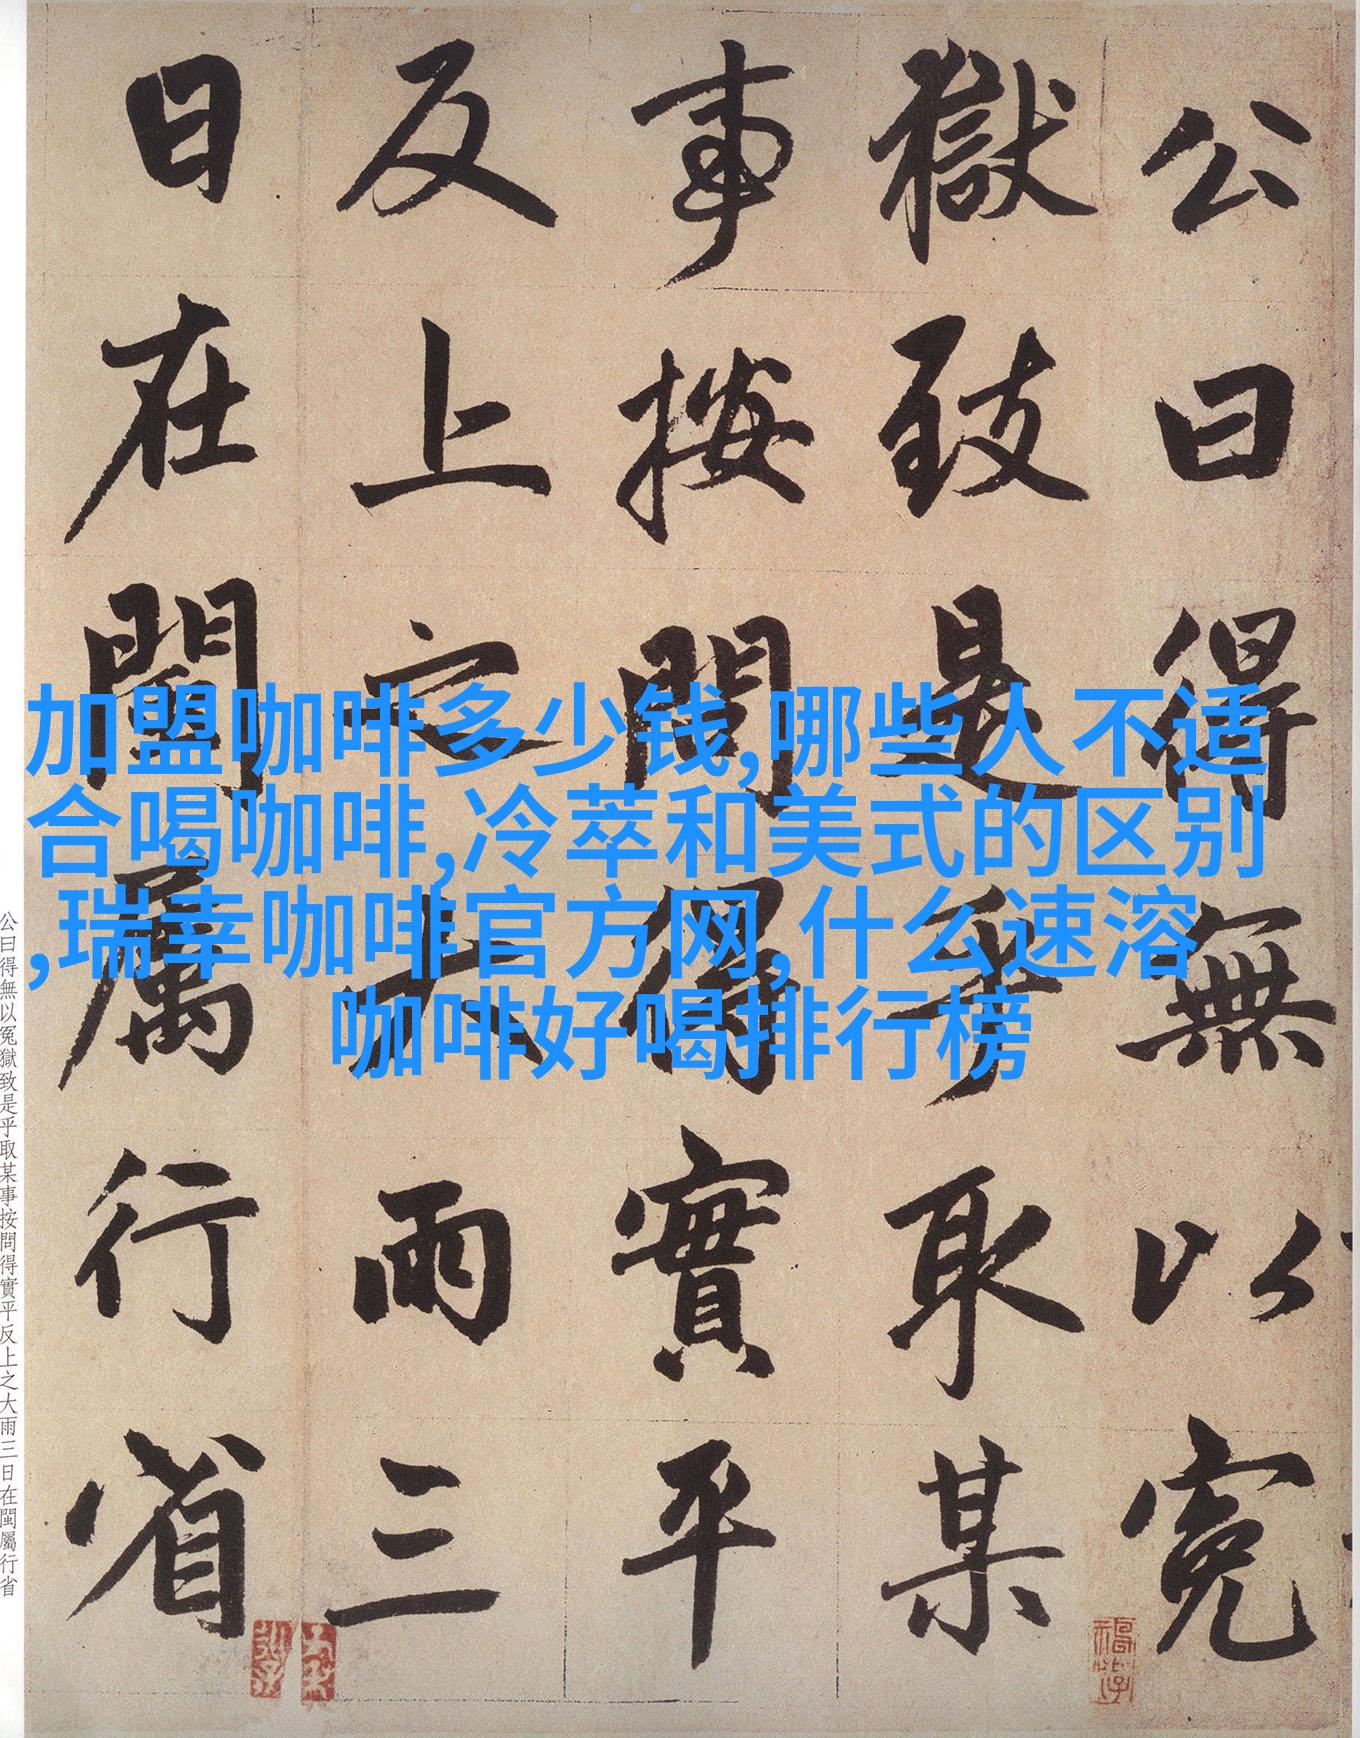 公曰得無以冤
獄致是乎取某
事按問得實平
反上之大雨三
日在閩屬行省
加盟咖啡多少钱,哪些人不适
合喝咖啡,冷萃和美式的区别
,瑞幸咖啡官方网,什么速溶
咖啡好喝排行榜
公曰得無以冤獄致是乎取某事按問得實平反上之大雨三日在閩屬行省